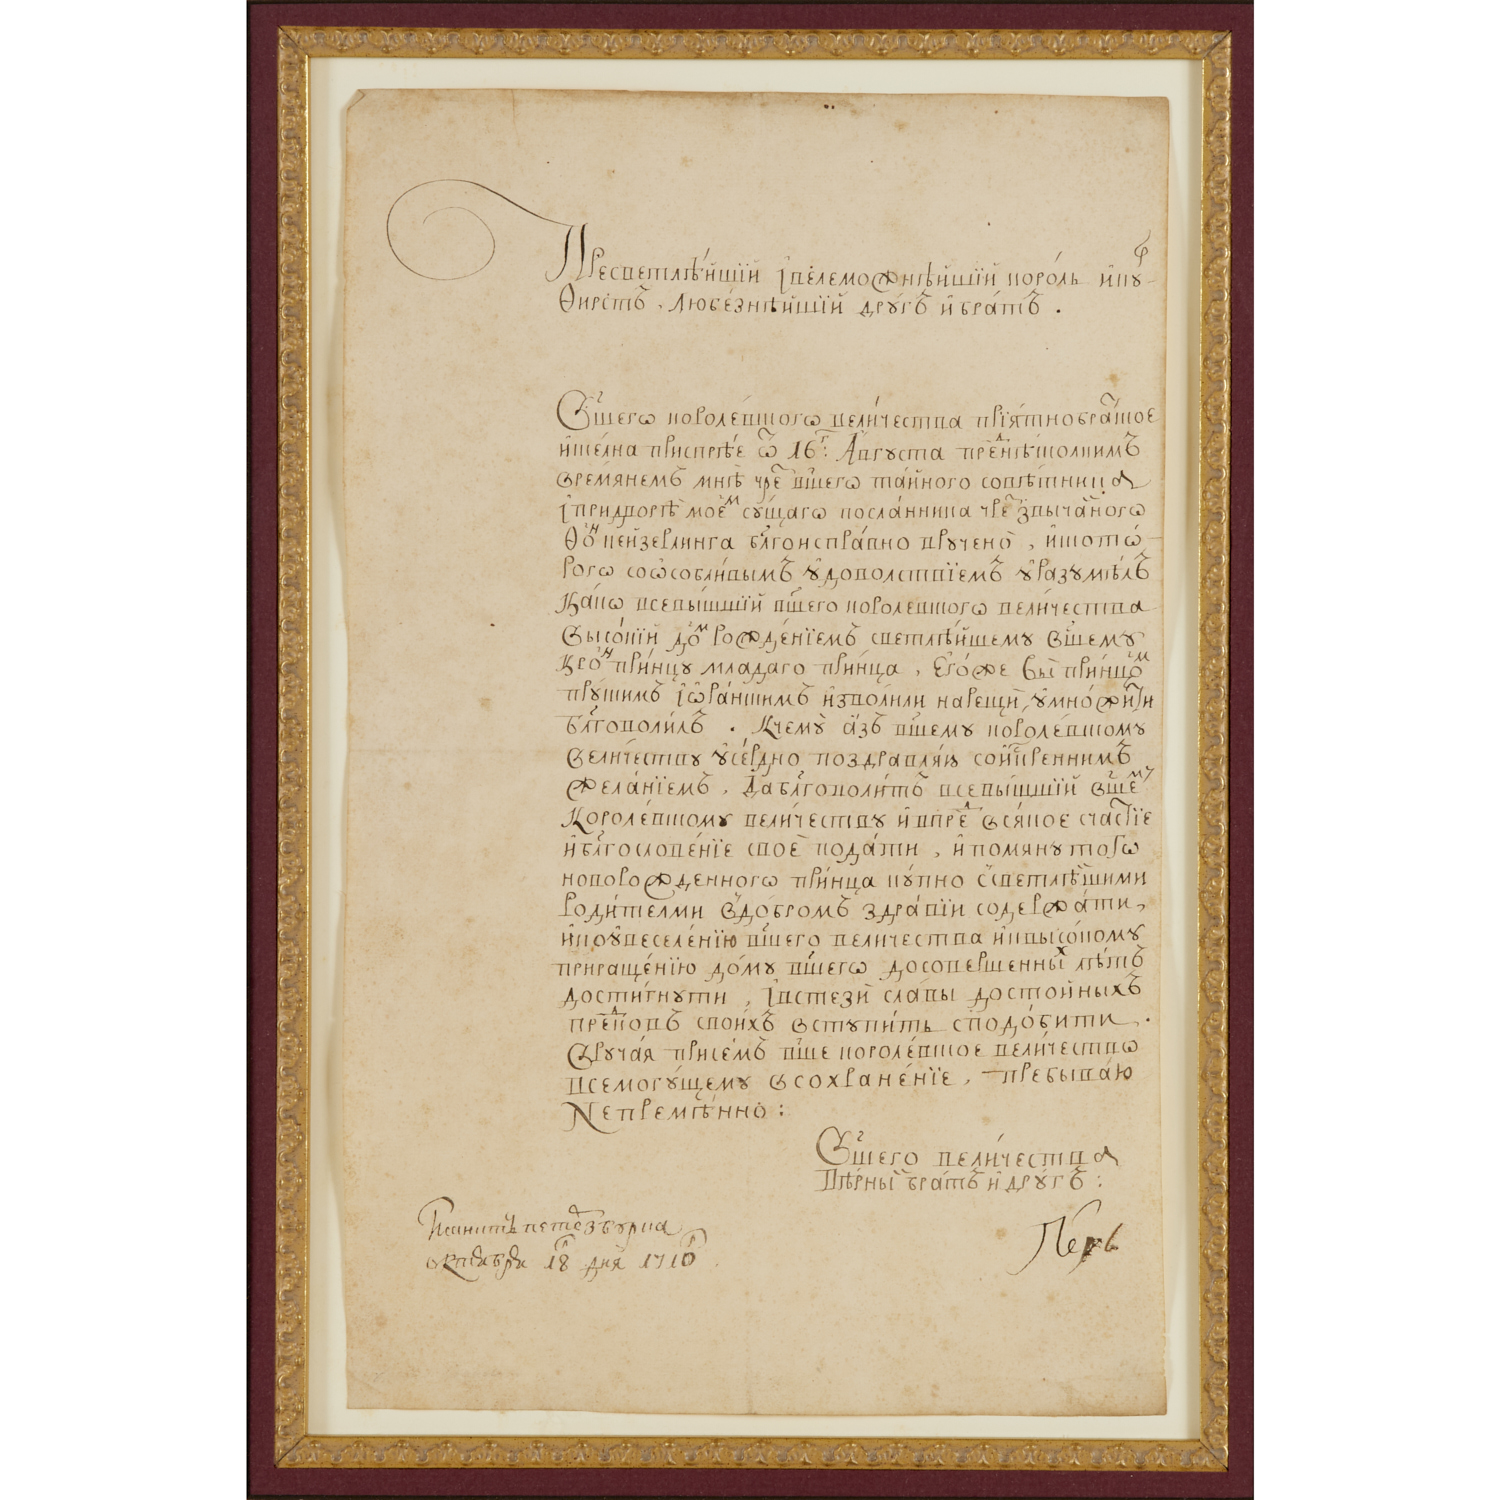 Пресветлѣ́йшїй І велеможнѣйшїй коро́ль и ку᷒р-
Фирстъ, Любе́знѣйшїй дрꙋ́гъ и бра́тъ.
Вшегѡ короле́вскогѡ вели́чества прїя́тнобратцкое
писа́нїе ѿ 16г: А́вгуста пред нѣ́сколкимъ
времянемъ мнѣ чре вшегѡ та́йного совѣ́тника
І при дворѣ мое́м сꙋ́щагѡ посла́нника чре звыча́ного
Фо́н кейзерлинга блгоиспра́вно врꙋчено̀, и с кото-
рогѡ со ѡсобли́вымъ ꙋдово́лствїемъ ꙋразꙋмѣ́лъ
Ка́кѡ всевы́шшїй вшего короле́вскогѡ вели́чества
высо́кїй до́м рожде́нїемъ светлѣ́йшемꙋ вшемꙋ
Кро́н при́нцꙋ младаго при́нца, Его́же вы при́нцом
прꙋ́скимъ І ѡра́нскимъ изво́лили нарещѝ, ꙋмно́жити
блгово́лилъ. К чемꙋ̀ а́зъ вшемꙋ короле́вскомꙋ
вели́чествꙋ ꙋсе́рдно поздравля́ю со и́скреннимъ
жела́нїемъ, Да блговоли́тъ всевы́шшїй вше́мꙋ
Короле́вскомꙋ вели́чествꙋ и впре́д вся́кое сча́стїе
и блгослове́нїе своѐ пода́ти, и помянꙋтогѡ
новорожденногѡ при́нца кꙋ́пно с свѣтлѣ́йшими
роди́телми в до́бромъ здра́вїи содержа́ти,
и к ꙋвеселе́нїю вшего вели́чества и к высо́комꙋ
прираще́нїю до́мꙋ вшегѡ до соверше́нных лѣ́тъ
дости́гнꙋти, І в стезѝ сла́вы досто́йныхъ
пре́дковъ свои́хъ встꙋпи́ть сподо́бити.
Врꙋча́я при се́мъ вше короле́вское вели́чествѡ
всемогꙋ́щемꙋ в сохране́нїе, пребыва́ю
Непремѣ́нно:
Вшего вели́чества
Вѣ́рны бра́тъ и дрꙋ́гъ:
Петръ
Писанъ въ санктъ петерзбурка
октября 18 дня 1710